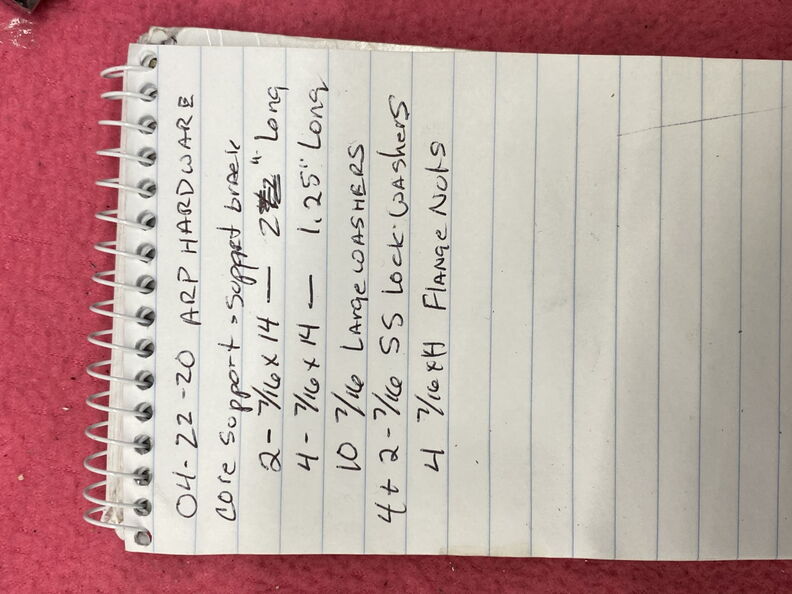 04-22-20 ARP HARDWARE
Core Support & Support brack
2 - 7/16 x 14 — 2" Long
4 - 7/16 x 14 — 1.25" Long
10 7/16 Large WASHERS
4 + 2 - 7/16 SS Lock WAShers
4 7/16 x 14 FLANge Nuts